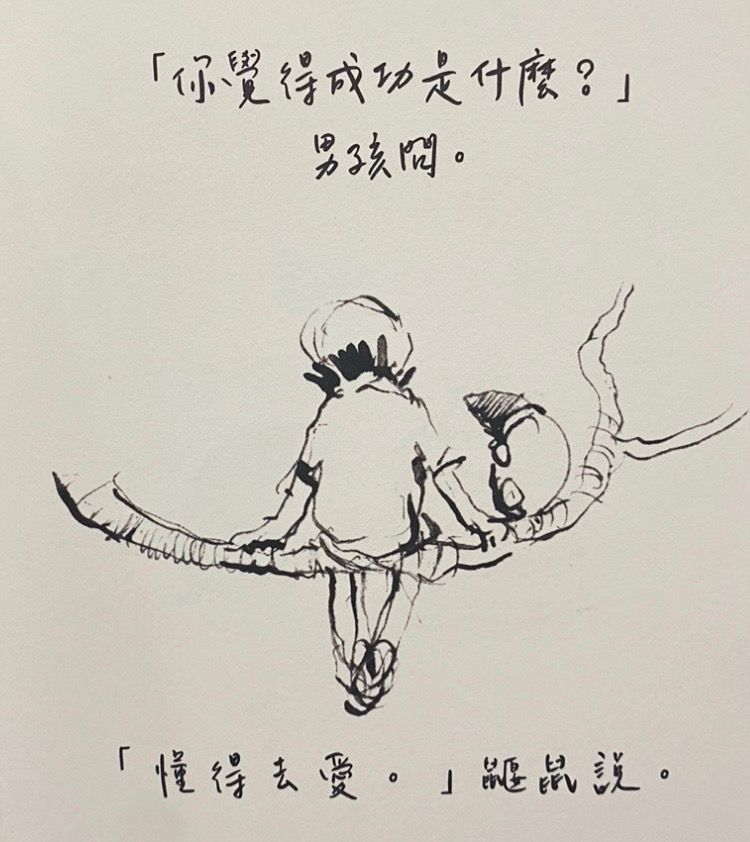 「你覺得成功是什麼？」
男孩問。
「懂得去愛。」鼴鼠說。